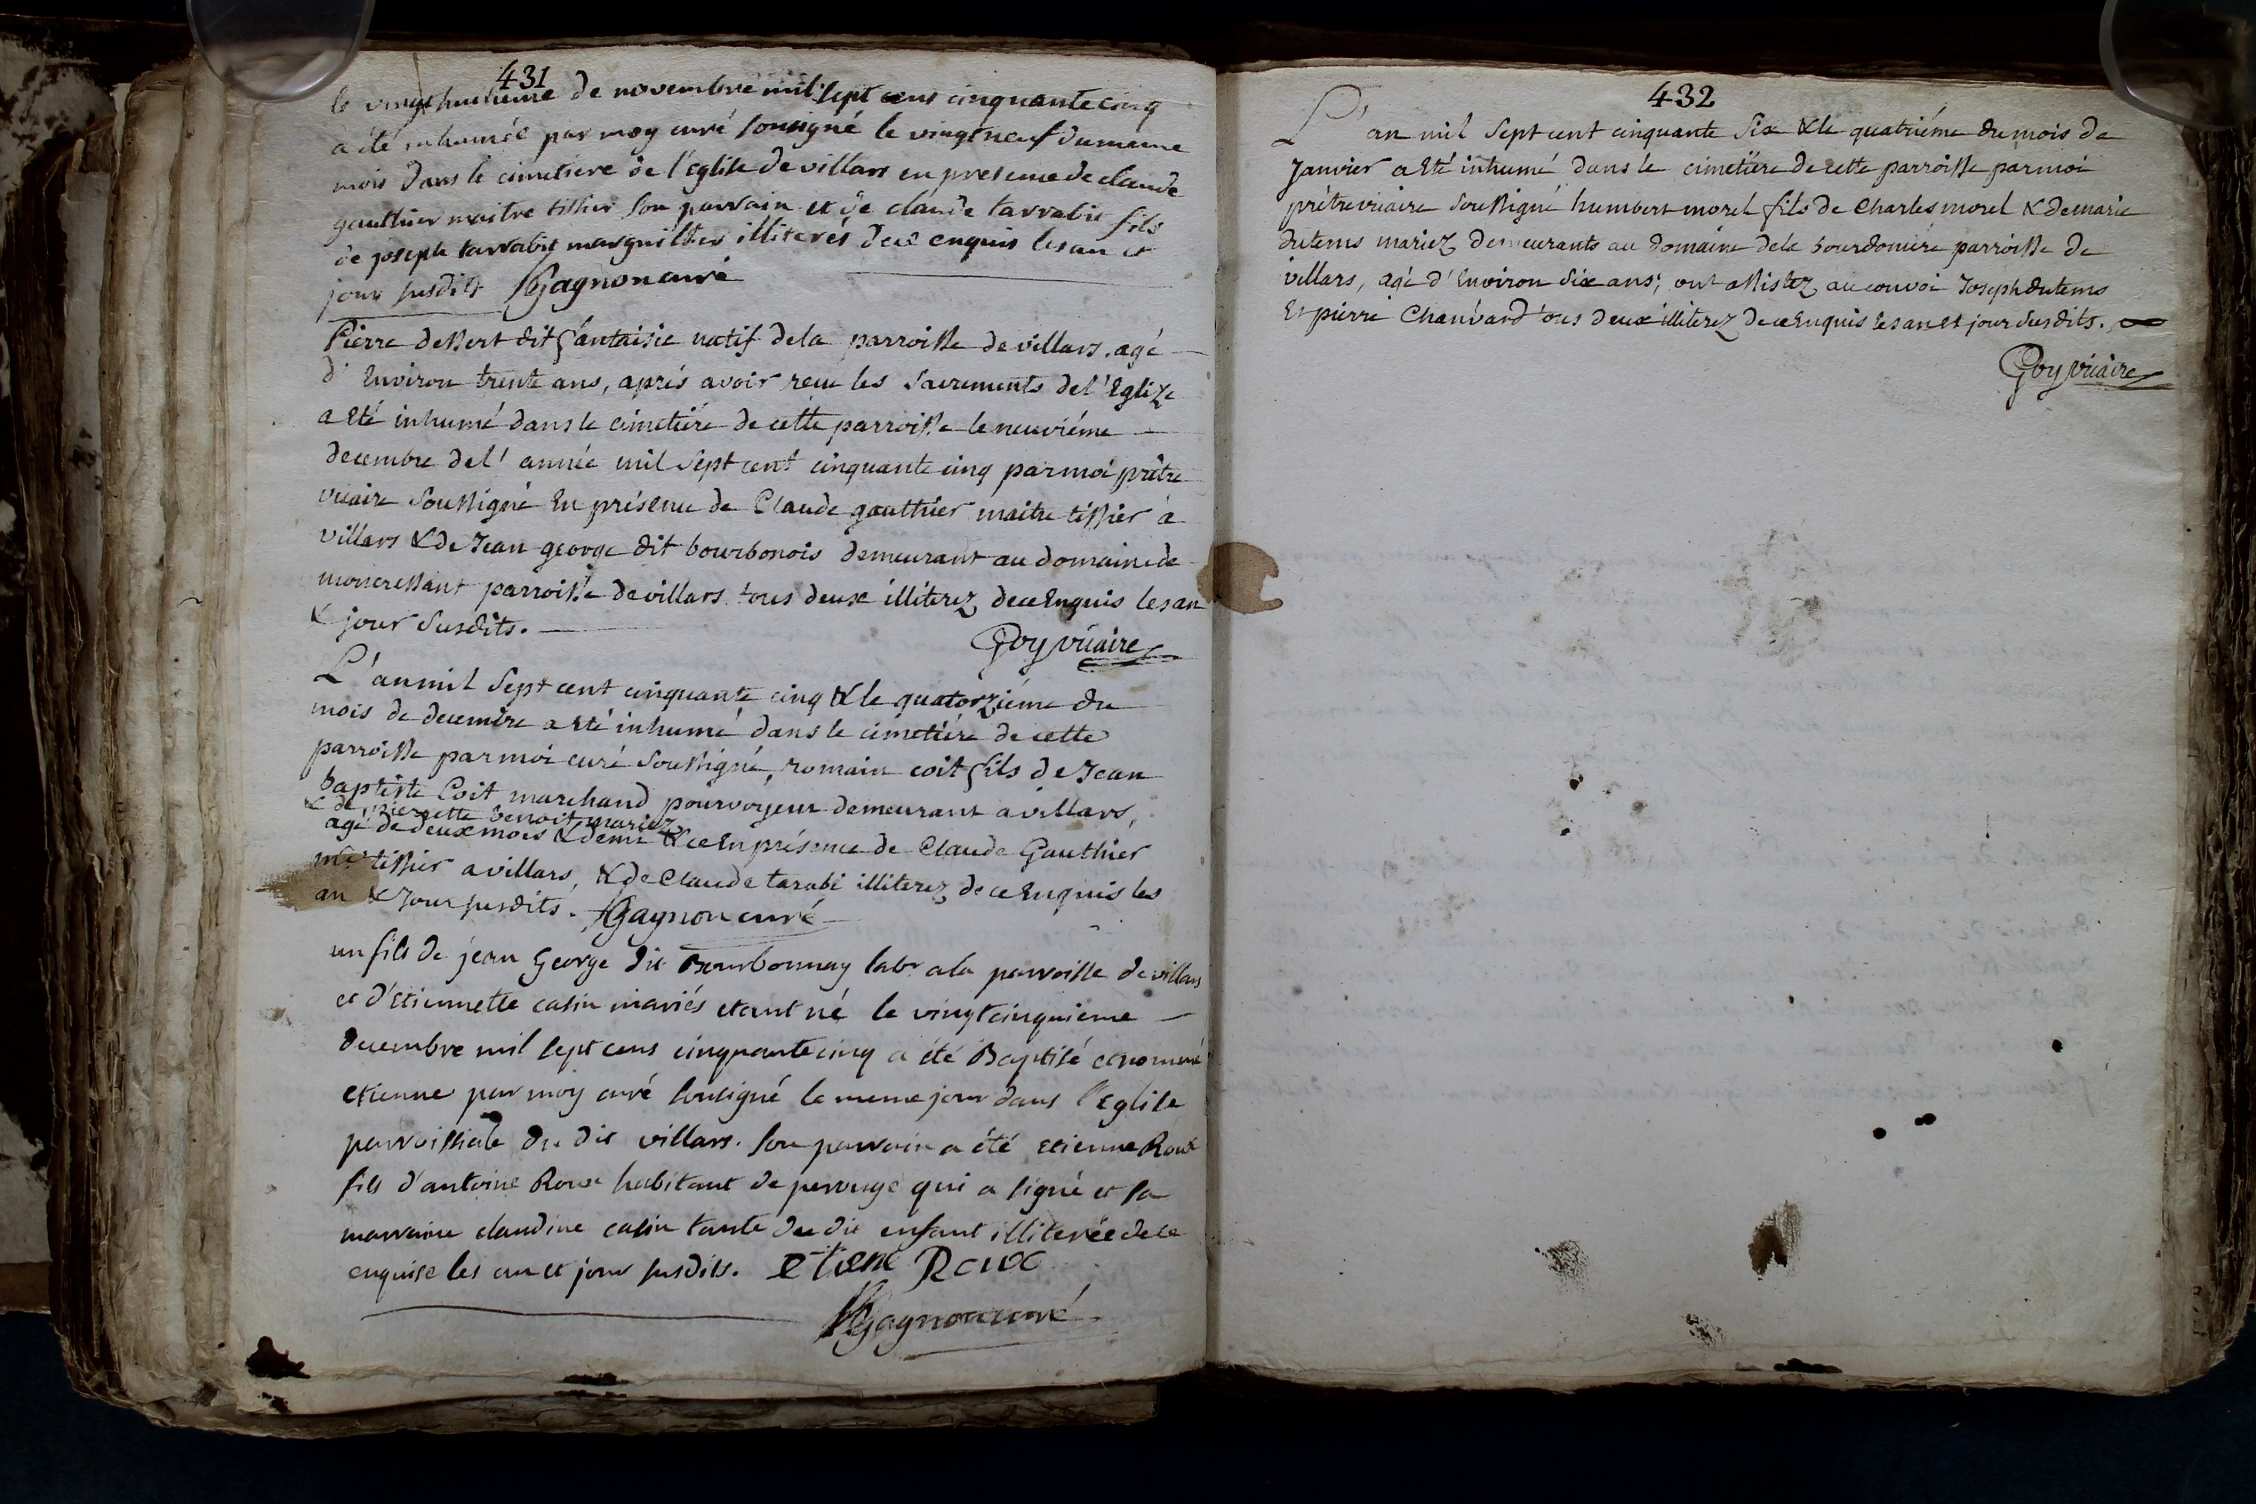 431
le vingthuitieme de novembre mil sept cens cinquante cinq
a été inhumée par moy curé sousigné le vingtneuf du meme
mois dans le cimetiere de l'Eglise de villars en presence de claude
gauthier maitre tissier son parrain et de claude tarrabit fils
de joseph tarrabit marguillier illiterés de ce enquis les an et
jour susdits Gagnon curé
Pierre dessert dit fantaisie natif de la parroisse de villars. agé
d'Environ trente ans, aprés avoir recu les sacrements de l'Eglize
a Eté inhumé dans le cimetiére de cette parroisse le neuviéme
decembre de l'année mil sept cent cinquante cinq par moi prêtre
vicaire soussigné En présence de Claude gauthier maitre tissier à
villars & de Jean george dit bourbonois demeurant au domaine de
moncressant parroisse de villars tous deux illiterez de ce Enquis les an
& jour susdits.
Goy vicaire
L'an mil sept cent cinquante cinq & le quatorziéme du
mois de decembre a Eté inhumé dans le cimetiére de cette
parroisse par moi curé soussigné, romain coit fils de Jean
baptiste Coit marchand pourvoyeur demeurant a villars,
& de pierrette benoit mariez
agé de deux mois & demi & ce En présence de Claude Gauthier
me tissier a villars, & de Claude tarabi illiterez de ce Enquis les
an & Jour susdits. Gagnon curé
un fils de jean George dit Bourbonnay labr a la parroisse de villars
et d'Etiennette casin mariés etant né le vingtcinquieme
decembre mil sept cens cinquante cinq a été Baptisé et nommé
etienne par moy curé sousigné le meme jour dans l'Eglise
parroissiale du dit villars. son parrain a été etienne Roux
fils d'antoine Roux habitant de perouge qui a signé et sa
marraine claudine casin tante du dit enfant illiterée de ce
enquise les an et jour susdits. etiene Roux
Gagnon curé
432
L'an mil sept cent cinquante six & le quatriéme du mois de
Janvier a Eté inhumé dans le cimetiére de cette parroisse par moi
prêtre vicaire soussigné humbert morel fils de Charles morel & de marie
dutems mariez demeurants au domaine de la bourdonniére parroisse de
villars, agé d'Environ six ans; ont assistez au convoi Joseph dutems
Et pierre Chanvard tous deux illiterez de ce Enquis les an et jour susdits.
Goy vicaire